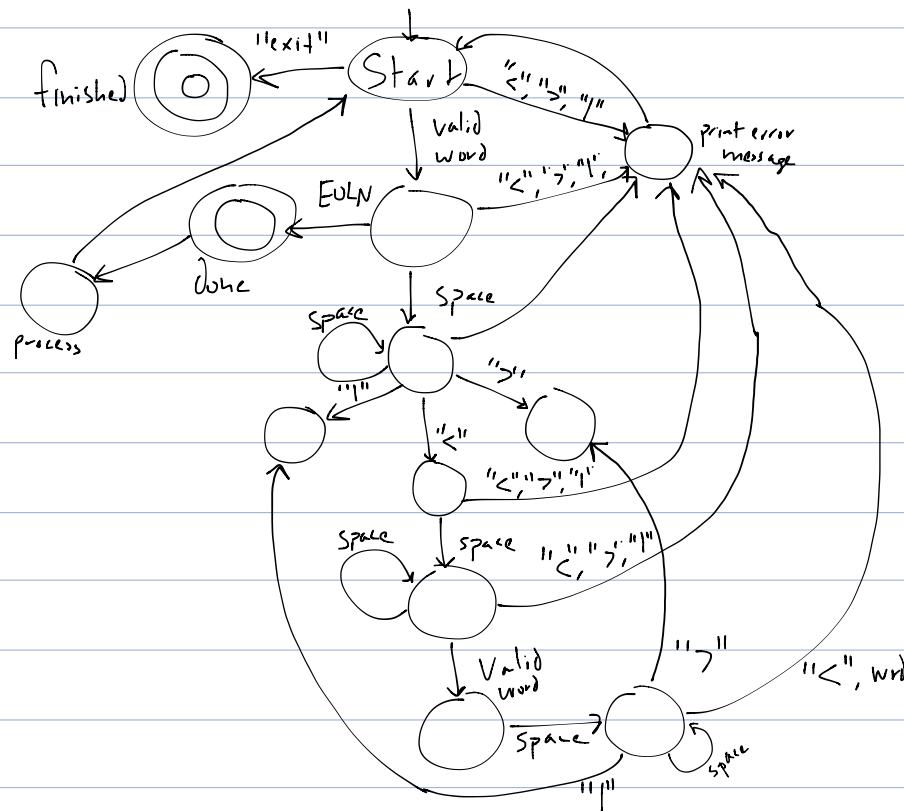 "exit"
finished
Start
"<", ">", "|"
print error
message
valid
word
"<", ">", "|",
EOLN
done
process
space
space
"|"
">"
"<"
"<", ">", "|"
space
space
"<", ">", "|"
Valid
word
">"
"<", wrd
space
space
"|"